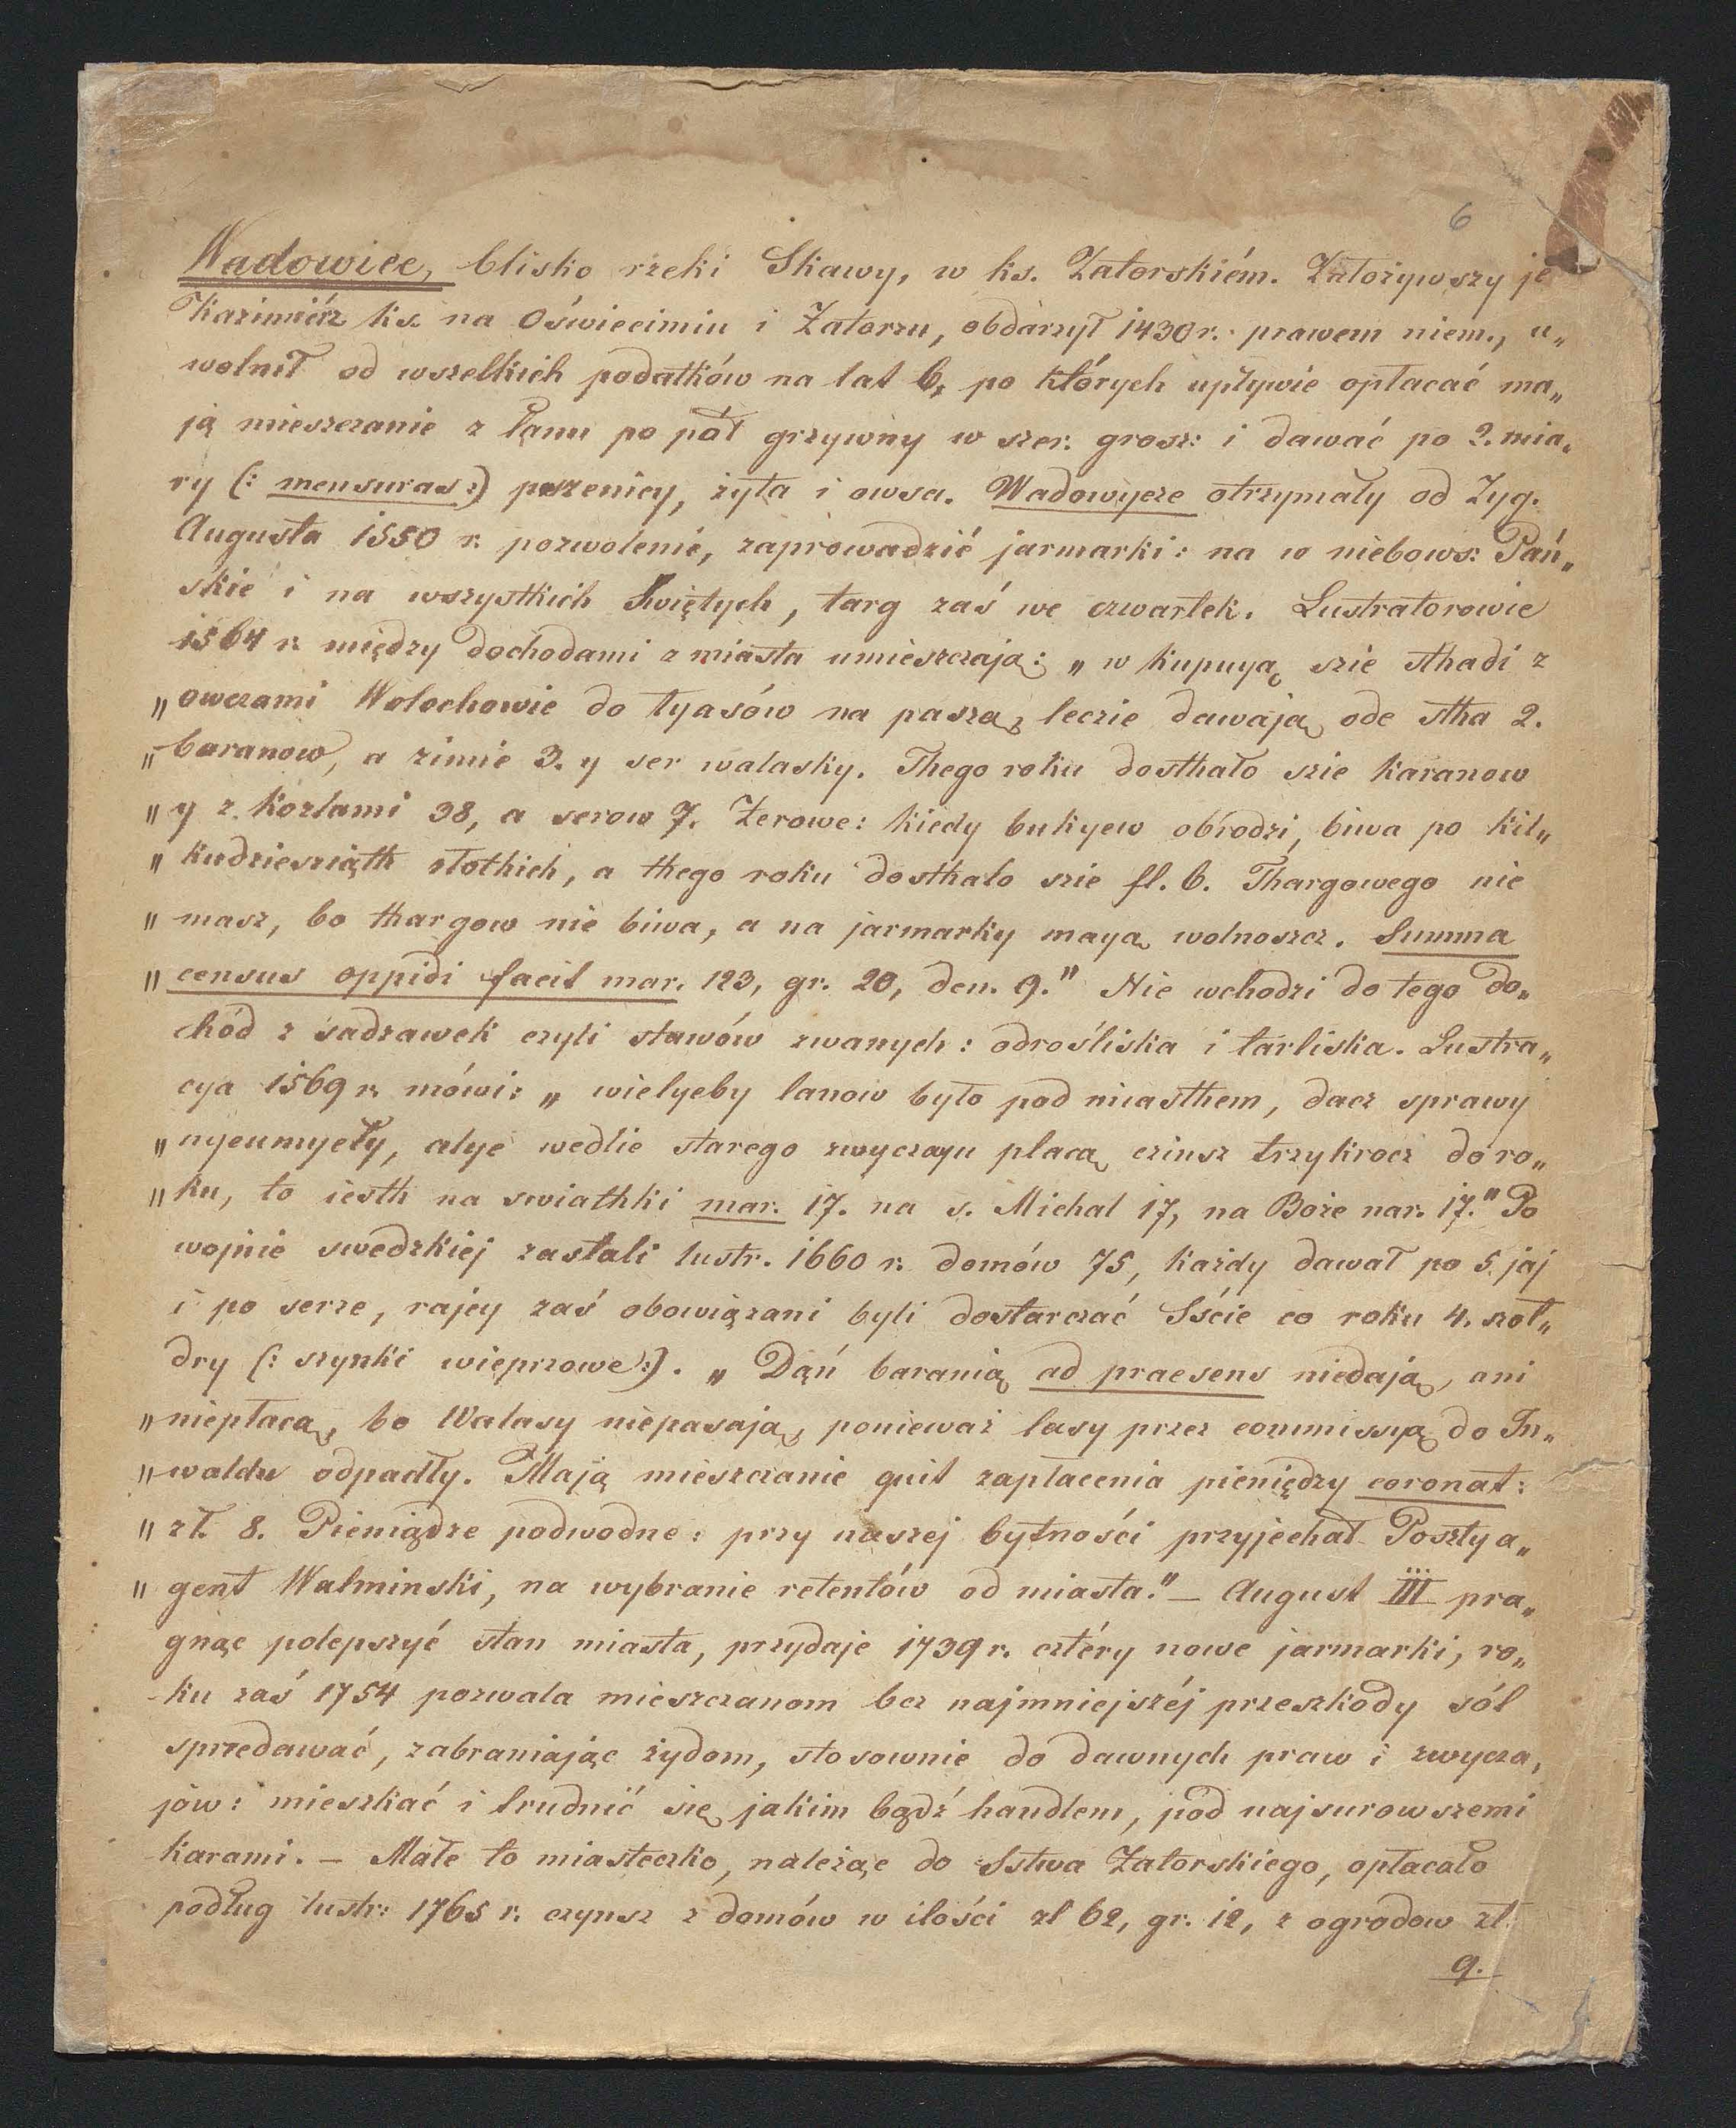 6
Wadowice, blisko rzeki Skawy, w ks. Zatorskiém. Założywszy je
Kazimiérz ks. na Oświecimiu i Zatorzu, obdarzył 1430 r. prawem niem., u„
wolnił od wszelkich podatków na lat 6, po których upływie opłacać ma„
ją mieszczanie z łanu po pół grzywny w szer. grosz: i dawać po 2. mia„
ry (: mensuras :) pszenicy, żyta i owsa. Wadowycze otrzymały od Zyg.
Augusta 1550 r. pozwolenie, zaprowadzić jarmarki: na w niebows: Pań„
skie i na wszystkich Świętych, targ zaś we czwartek. Lustratorowie
1564 r. między dochodami z miasta umieszczają: „w kupuyą szie sthadi z
„owczami Wolochowie do lyasów na paszą, leczie dawają ode stha 2.
„baranow, a zimie 3. y ser walasky. Thego roku dosthało szie karanow
„y z kozlami 38, a serow 7. Żerowe: kiedy bukyew obrodzi, biwa po kil„
„kudziesziąth złothich, a thego roku dosthalo szie fl. 6. Thargowego nie
„masz, bo thargow nie biwa, a na jarmarky mayą wolnoszcz. Summa
„census oppidi facit mar. 123, gr. 20, den. 9." Nie wchodzi do tego do„
chód z sadzawek czyli stawów zwanych: odrośliska i tarliska. Lustra„
cya 1569 r. mówi: „wielyeby lanow było pod miasthem, dacz sprawy
„nyeumyeły, alye wedlie starego zwyczayu płacą czinsz trzykrocz do ro„
„ku, to iesth na swiathki mar. 17. na s. Michal 17, na Boże nar. 17." Po
wojnie swedzkiej zastali lustr. 1660 r. domów 75, każdy dawał po 5. jaj
i po serze, rajcy zaś obowiązani byli dostarczać Sście co roku 4. szoł„
dry (: szynki wieprzowe :). „Dąń baranią ad praesens niedają, ani
„niepłacą, bo Walasy niepasają, ponieważ lasy przez commissyą do In„
„waldu odpadły. Mają mieszczanie quit zapłacenia pieniędzy coronat:
„zł. 8. Pieniądze podwodne: przy naszej bytności przyjechał Poszty a„
„gent Walminski, na wybranie retentów od miasta." — August III pra„
gnąc polepszyć stan miasta, przydaje 1739 r. cztéry nowe jarmarki, ro„
ku zaś 1754 pozwala mieszczanom bez najmniejszéj przeszkody sól
sprzedawać, zabraniając żydom, stosownie do dawnych praw i zwycza„
jów: mieszkać i trudnić się jakim bądź handlem, pod najsurowszemi
karami. — Małe to miasteczko, należąc do Sstwa Zatorskiego, opłacało
podług lustr: 1765 r. czynsz z domów w ilości zł 62, gr. 12, z ogrodow zł.
9.